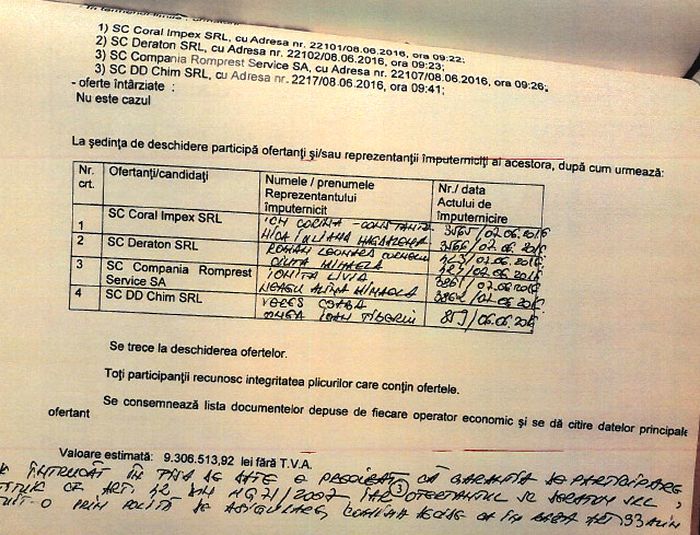 1) SC Coral Impex SRL, cu Adresa nr. 22101/08.06.2016, ora 09:22;
2) SC Deraton SRL, cu Adresa nr. 22102/08.06.2016, ora 09:23;
3) SC Compania Romprest Service SA, cu Adresa nr. 22107/08.06.2016, ora 09:26;
3) SC DD Chim SRL, cu Adresa nr. 2217/08.06.2016, ora 09:41;
- oferte întârziate :
Nu este cazul
La şedinţa de deschidere participă ofertanţi şi/sau reprezentanţii împuterniciţi ai acestora, după cum urmează:
Nr. crt.
Ofertanţi/candidaţi
Numele / prenumele
Reprezentantului
împuternicit
Nr./ data
Actului de
împuternicire
1
SC Coral Impex SRL
ION CORINA - CONSTANTA
3565/07.06.2016
MICA IULIANA MAGDALENA
3566/07.06.2016
2
SC Deraton SRL
ROMAN LEONARD CORNELIU
MIHAELA
3
SC Compania Romprest
Service SA
IONITA LIVIA
07.06.2016
NEAGU ALINA MIHAELA
07.06.2016
4
SC DD Chim SRL
VERES CSABA
IOAN TIBERIU
859/06.06.2016
Se trece la deschiderea ofertelor.
Toţi participanţii recunosc integritatea plicurilor care conţin ofertele.
Se consemnează lista documentelor depuse de fiecare operator economic şi se dă citire datelor principale
ofertant
Valoare estimată: 9.306.513,92 lei fără T.V.A.
ÎNTRUCÂT ÎN FIȘA DE DATE CĂ GARANȚIA DE PARTICIPARE
ART. DIN HG 71/2007, IAR OFERTANTUL SC DERATON SRL,
PRIN POLIȚĂ DE ASIGURARE, COMISIA DECIDE CA ÎN BAZA ART 93 ALIN